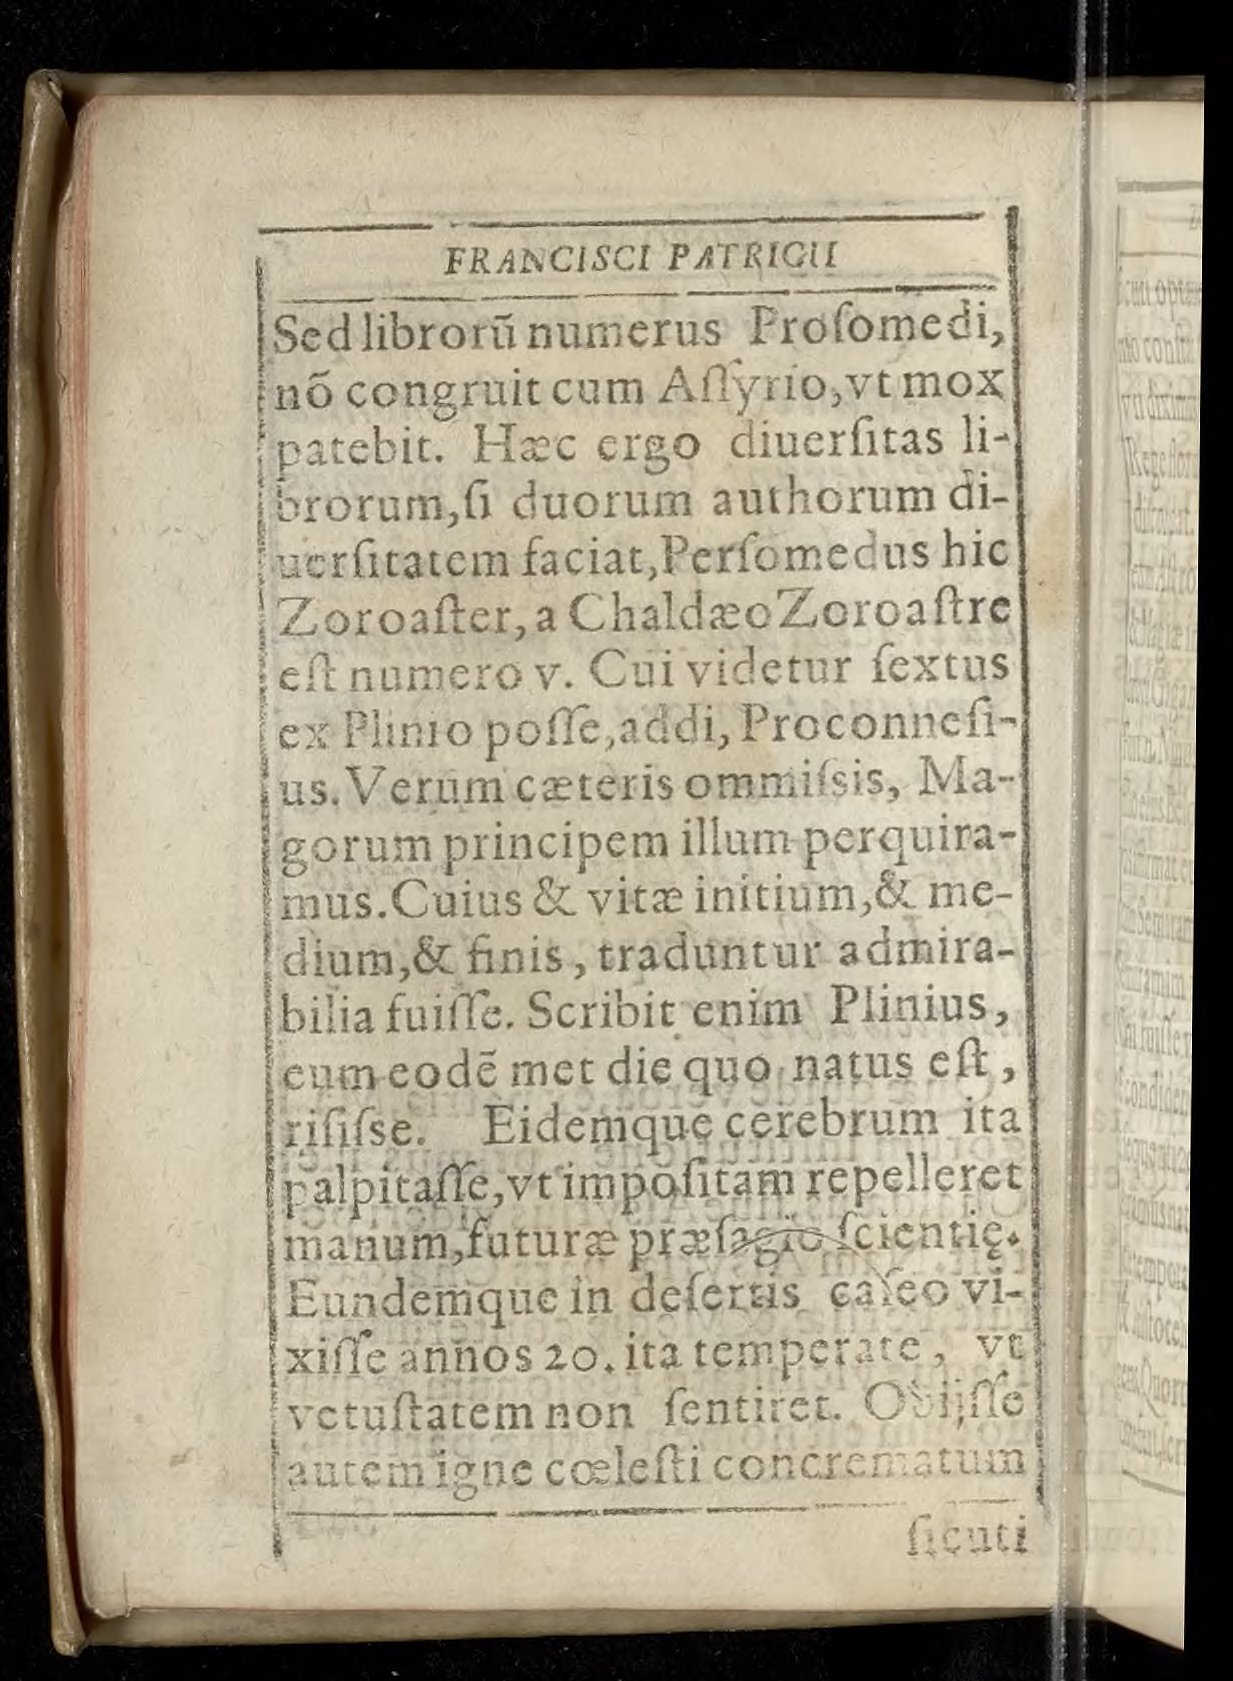 FRANCISCI PATRICII
Sed librorū numerus Proſomedi,
nō congruit cum Aſſyrio, vt mox
patebit. Hæc ergo diuerſitas li-
brorum, ſi duorum authorum di-
uerſitatem faciat, Perſomedus hic
Zoroaſter, a Chaldæo Zoroaſtre
eſt numero v. Cui videtur ſextus
ex Plinio poſſe, addi, Proconneſi-
us. Verum cæteris ommiſsis, Ma-
gorum principem illum perquira-
mus. Cuius & vitæ initium, & me-
dium, & finis, traduntur admira-
bilia fuiſſe. Scribit enim Plinius,
eum eodē met die quo natus eſt,
riſiſse. Eidemque cerebrum ita
palpitaſſe, vt impoſitam repelleret
manum, futuræ præſagio ſcientię.
Eundemque in deſertis caſeo vi-
xiſſe annos 20. ita temperate, vt
vetuſtatem non ſentiret. Obijſſe
autem igne cœleſti concrematum
ſicuti